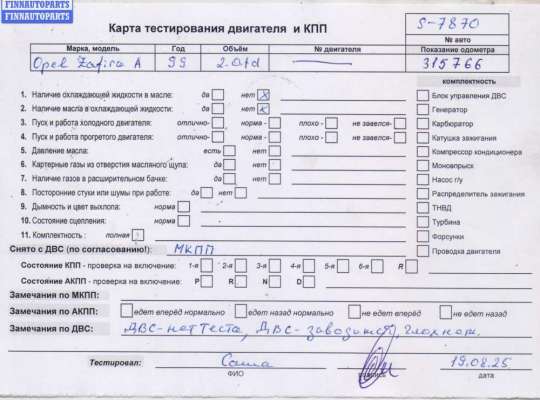 FINNAUTOPARTS
FINNAUTOPARTS
Карта тестирования двигателя и КПП
S-7870
№ авто
Марка, модель Год Объём № двигателя Показание одометра
Opel Zafira A 99 2.0td 315766
комплектность
1. Наличие охлаждающей жидкости в масле: да нет X
2. Наличие масла в охлаждающей жидкости: да нет
3. Пуск и работа холодного двигателя: отлично- норма - плохо - не завелся-
4. Пуск и работа прогретого двигателя: отлично- норма - плохо - не завелся-
5. Давление масла: есть нет
6. Картерные газы из отверстия масляного щупа: да нет
7. Наличие газов в расширительном бачке: да нет
8. Посторонние стуки или шумы при работе: да нет
9. Дымность и цвет выхлопа: норма
10. Состояние сцепления: норма
11. Комплектность : полная
Блок управления ДВС
Генератор
Карбюратор
Катушка зажигания
Компрессор кондиционера
Моновпрыск
Насос г/у
Распределитель зажигания
ТНВД
Турбина
Форсунки
Проводка двигателя
Снято с ДВС (по согласованию!): МКПП
Состояние КПП - проверка на включение: 1-я 2-я 3-я 4-я 5-я 6-я R
Состояние АКПП - проверка на включение: P R N D
Замечания по МКПП:
Замечания по АКПП: едет вперёд нормально едет назад нормально не едет вперёд не едет назад
Замечания по ДВС: ДВС-нет теста, ДВС-заводится,
Тестировал: Саша 19.08.25
ФИО подпись дата